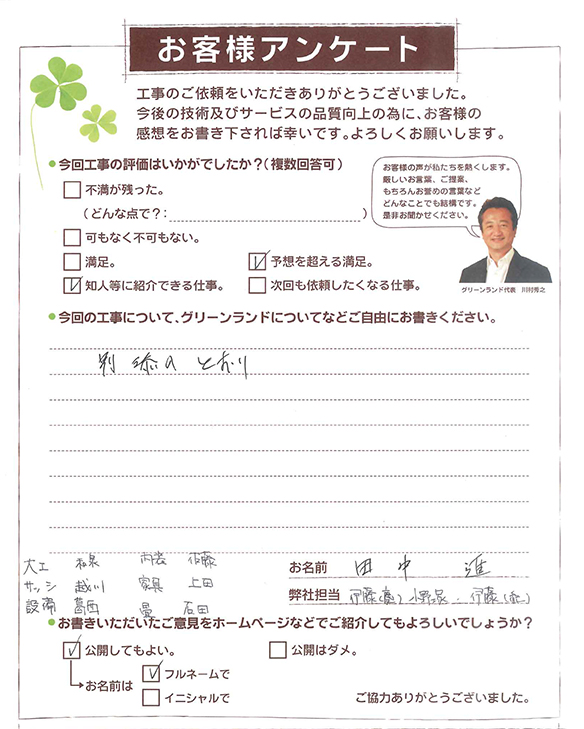 お客様アンケート
工事のご依頼をいただきありがとうございました。
今後の技術及びサービスの品質向上の為に、お客様の
感想をお書き下されば幸いです。よろしくお願いします。
● 今回工事の評価はいかがでしたか?(複数回答可)
不満が残った。
(どんな点で?: )
可もなく不可もない。
満足。
予想を超える満足。
知人等に紹介できる仕事。
次回も依頼したくなる仕事。
お客様の声が私たちを熱くします。
厳しいお言葉、ご提案、
もちろんお誉めの言葉など
どんなことでも結構です。
是非お聞かせください。
グリーンランド代表 川村秀之
● 今回の工事について、グリーンランドについてなどご自由にお書きください。
別添のとおり
大工 内装 佐藤
サッシ 越川 家具 上田
設備 葛西 畳 石田
お名前 田中 進
弊社担当 伊藤 小野寺・伊藤
● お書きいただいたご意見をホームページなどでご紹介してもよろしいでしょうか?
公開してもよい。 公開はダメ。
お名前は フルネームで
イニシャルで
ご協力ありがとうございました。